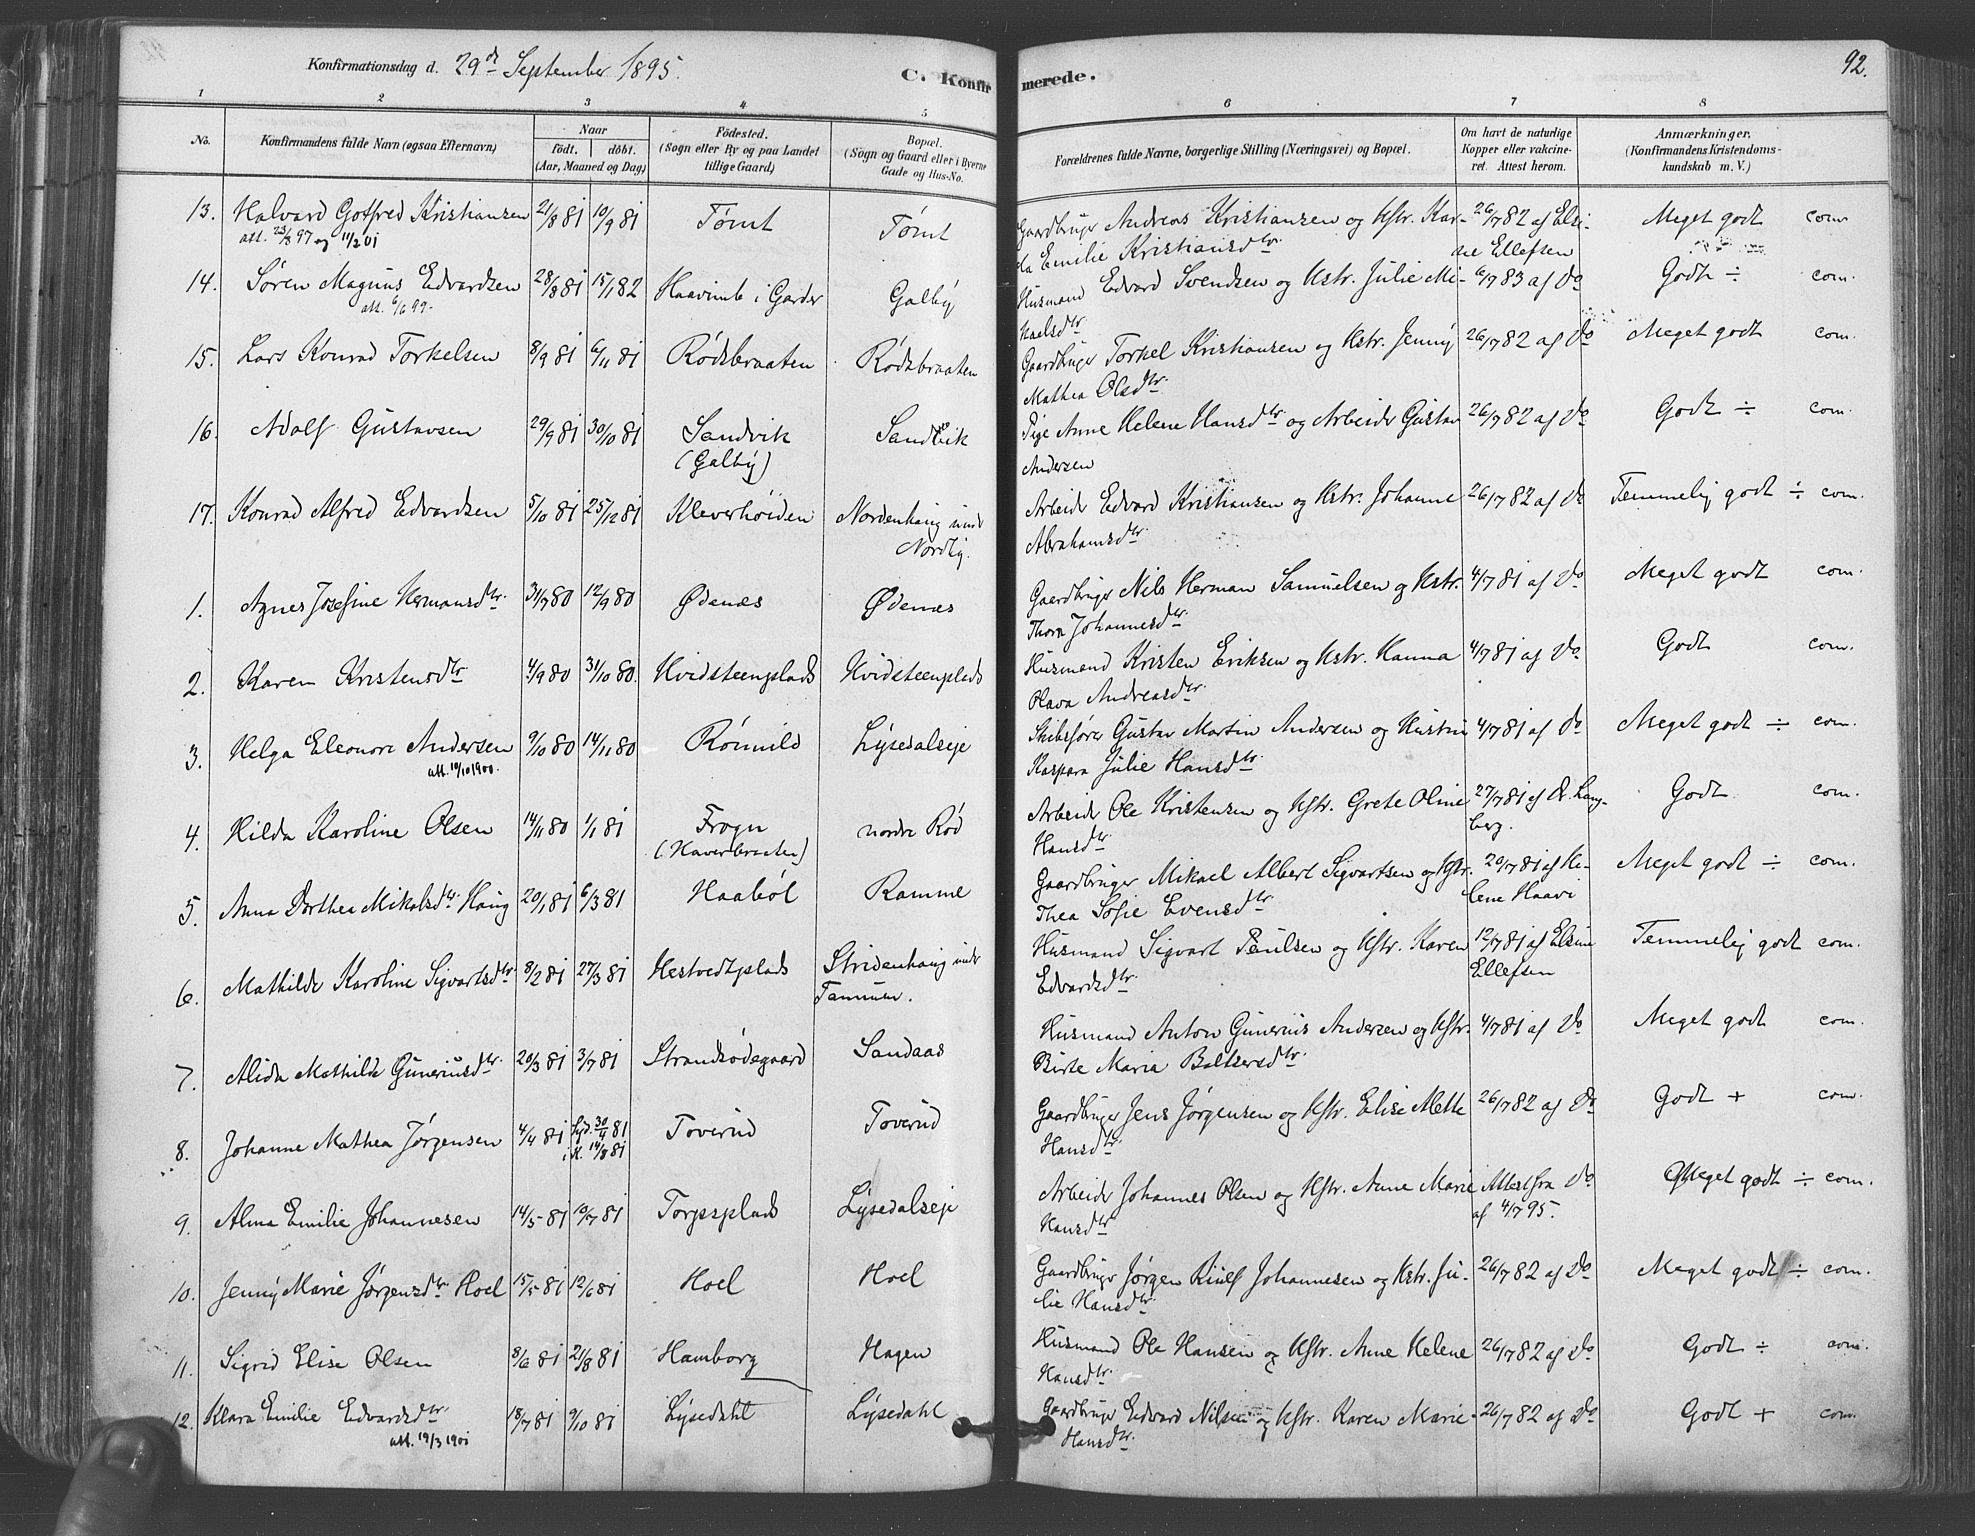 Konfirmationsdag d. 29de September 1895.
C. Konfirmerede.
92.
1 2 3 4 5 6 7 8
No.
Konfirmandens fulde Navn (ogsaa Efternavn)
Naar
födt. döbt.
(Aar, Maaned og Dag)
Födested.
(Sogn eller By og paa Landet
tillige Gaard)
Bopæl.
(Sogn og Gaard eller i Byerne
Gade og Hus-No.
Forældrenes fulde Navne, borgerlige Stilling (Næringsvei) og Bopæl.
Om havt de naturlige
Kopper eller vakcine-
ret. Attest herom.
Anmærkninger.
(Konfirmandens Kristendoms-
kundskab m. V.)
13. Halvard Gotfred Kristiansen 21/8 81 10/9 81 Tømt Tømt Gaardbruger Andreas Kristiansen og Kstr. Kar- 26/7 82 af Elsi- Meget godt com
att. 23/8 97 og 11/2 01 la Emilie Kristiansdtr. ne Ellefsen
14. Søren Magnus Edvardsen 28/8 81 15/1 82 Haavimb i Garder Galby Husmand Edvard Svendsen og Kstr. Julie Mi- 6/7 83 af Do Godt ÷ com.
att. 6/6 97. kaelsdtr
15. Lars Konrad Torkelsen 8/9 81 6/11 81 Rødsbraaten Rødsbraaten Gaardbruger Torkel Kristiansen og Kstr. Jenny 26/7 82 af Do Meget godt com.
Mathea Olsdtr.
16. Adolf Gustavsen 29/9 81 30/10 81 Sandvik Sandvik Pige Anne Helene Hansdtr og Arbeider Gustav 26/7 82 af Do Godt ÷ com.
(Galby) Andersen
17. Konrad Alfred Edvardsen 5/10 81 25/12 81 Kleverhøiden Nordenhaug under Arbeider Edvard Kristiansen og Kstr. Johanne 26/7 82 af Do Temmelig godt ÷ com.
Nordby. Abrahamsdtr
1. Agnes Josefine Hermansdtr. 31/7 80 12/9 80 Ødenæs Ødenæs Gaardbruger Nils Herman Samuelsen og Kstr. 4/7 81 af Do Meget godt com.
Thora Johannesdtr.
2. Karen Kristensdtr 4/9 80 31/10 80. Hvidsteenplads Hvidsteenplads Husmand Kristen Eriksen og Kstr. Hanna 4/7 81 af Do. Godt com.
Olava Andreasdtr.
3. Helga Eleonore Andersen 9/10 80 14/11 80 Rømuld Lysedalseje Skibsfører Gustav Martin Andersen og Hustru 4/7 81 af Do Meget godt ÷ com.
att. 10/10 1900. Kaspara Julie Hansdtr.
4. Hilda Karoline Olsen 14/11 80 1/1 81 Frogn nordre Rød Arbeider Ole Kristensen og Kstr. Grete Oline 27/7 81 af Dr. Lang- Godt com.
(Haverbraaten) Hansdtr berg.
5. Anna Dorthea Mikalsdtr. Haug 20/1 81 6/3 81 Haabøl Ramme Gaardbruger Mikael Albert Sigvartsen og Kstr. 20/7 81 af He- Meget godt ÷ com.
Thea Sofie Evensdtr. lene Haavi
6. Mathilde Karoline Sigvartsdtr 8/2 81 27/3 81 Hestvedtplads Stridenhaug under Husmand Sigvart Paulsen og Kstr. Karen 12/7 81 af Elsine Temmelig godt com.
Edvardsdtr. Ellefsen
7. Alida Mathilde Guneriusdtr. 20/3 81 3/7 81 Strandsødegaard Sandaas Husmand Anton Gunerius Andersen og Kstr. 4/7 81 af Do Meget godt com.
Birte Maria Baltsersdtr.
8. Johanne Mathea Jørgensen 4/4 81 30/4 81 Toverud Toverud Gaardbruger Jens Jørgensen og Kstr. Elise Mette 26/7 82 af Do Godt + com.
i K. 14/8 81 Hansdtr.
9. Alma Emilie Johannesen 14/5 81 10/7 81 Torpsplads Lysedalseje Arbeider Johannes Olsen og Kstr. Anne Marie Attest fra Do Meget godt ÷ com.
Hansdtr af 4/7 95.
10. Jenny Marie Jørgensdtr. Hoel 15/5 81 12/6 81 Hoel Hoel Gaardbruger Jørgen Riulf Johannesen og Kstr. Ju- 26/7 82 af Do Meget godt ÷ com.
lie Hansdtr.
11. Sigrid Elise Olsen 8/6 81 21/8 81 Hamborg Hagen Husmand Ole Hansen og Kstr. Anne Helene 26/7 82 af Do Godt ÷ com.
Hansdtr.
12. Klara Emilie Edvardsdtr. 18/7 81 9/10 81 Lysedahl Lysedahl Gaardbruger Edvard Nilsen og Kstr. Karen Marie 26/7 82 af Do Godt + com.
att. 19/3 1901 Hansdtr.